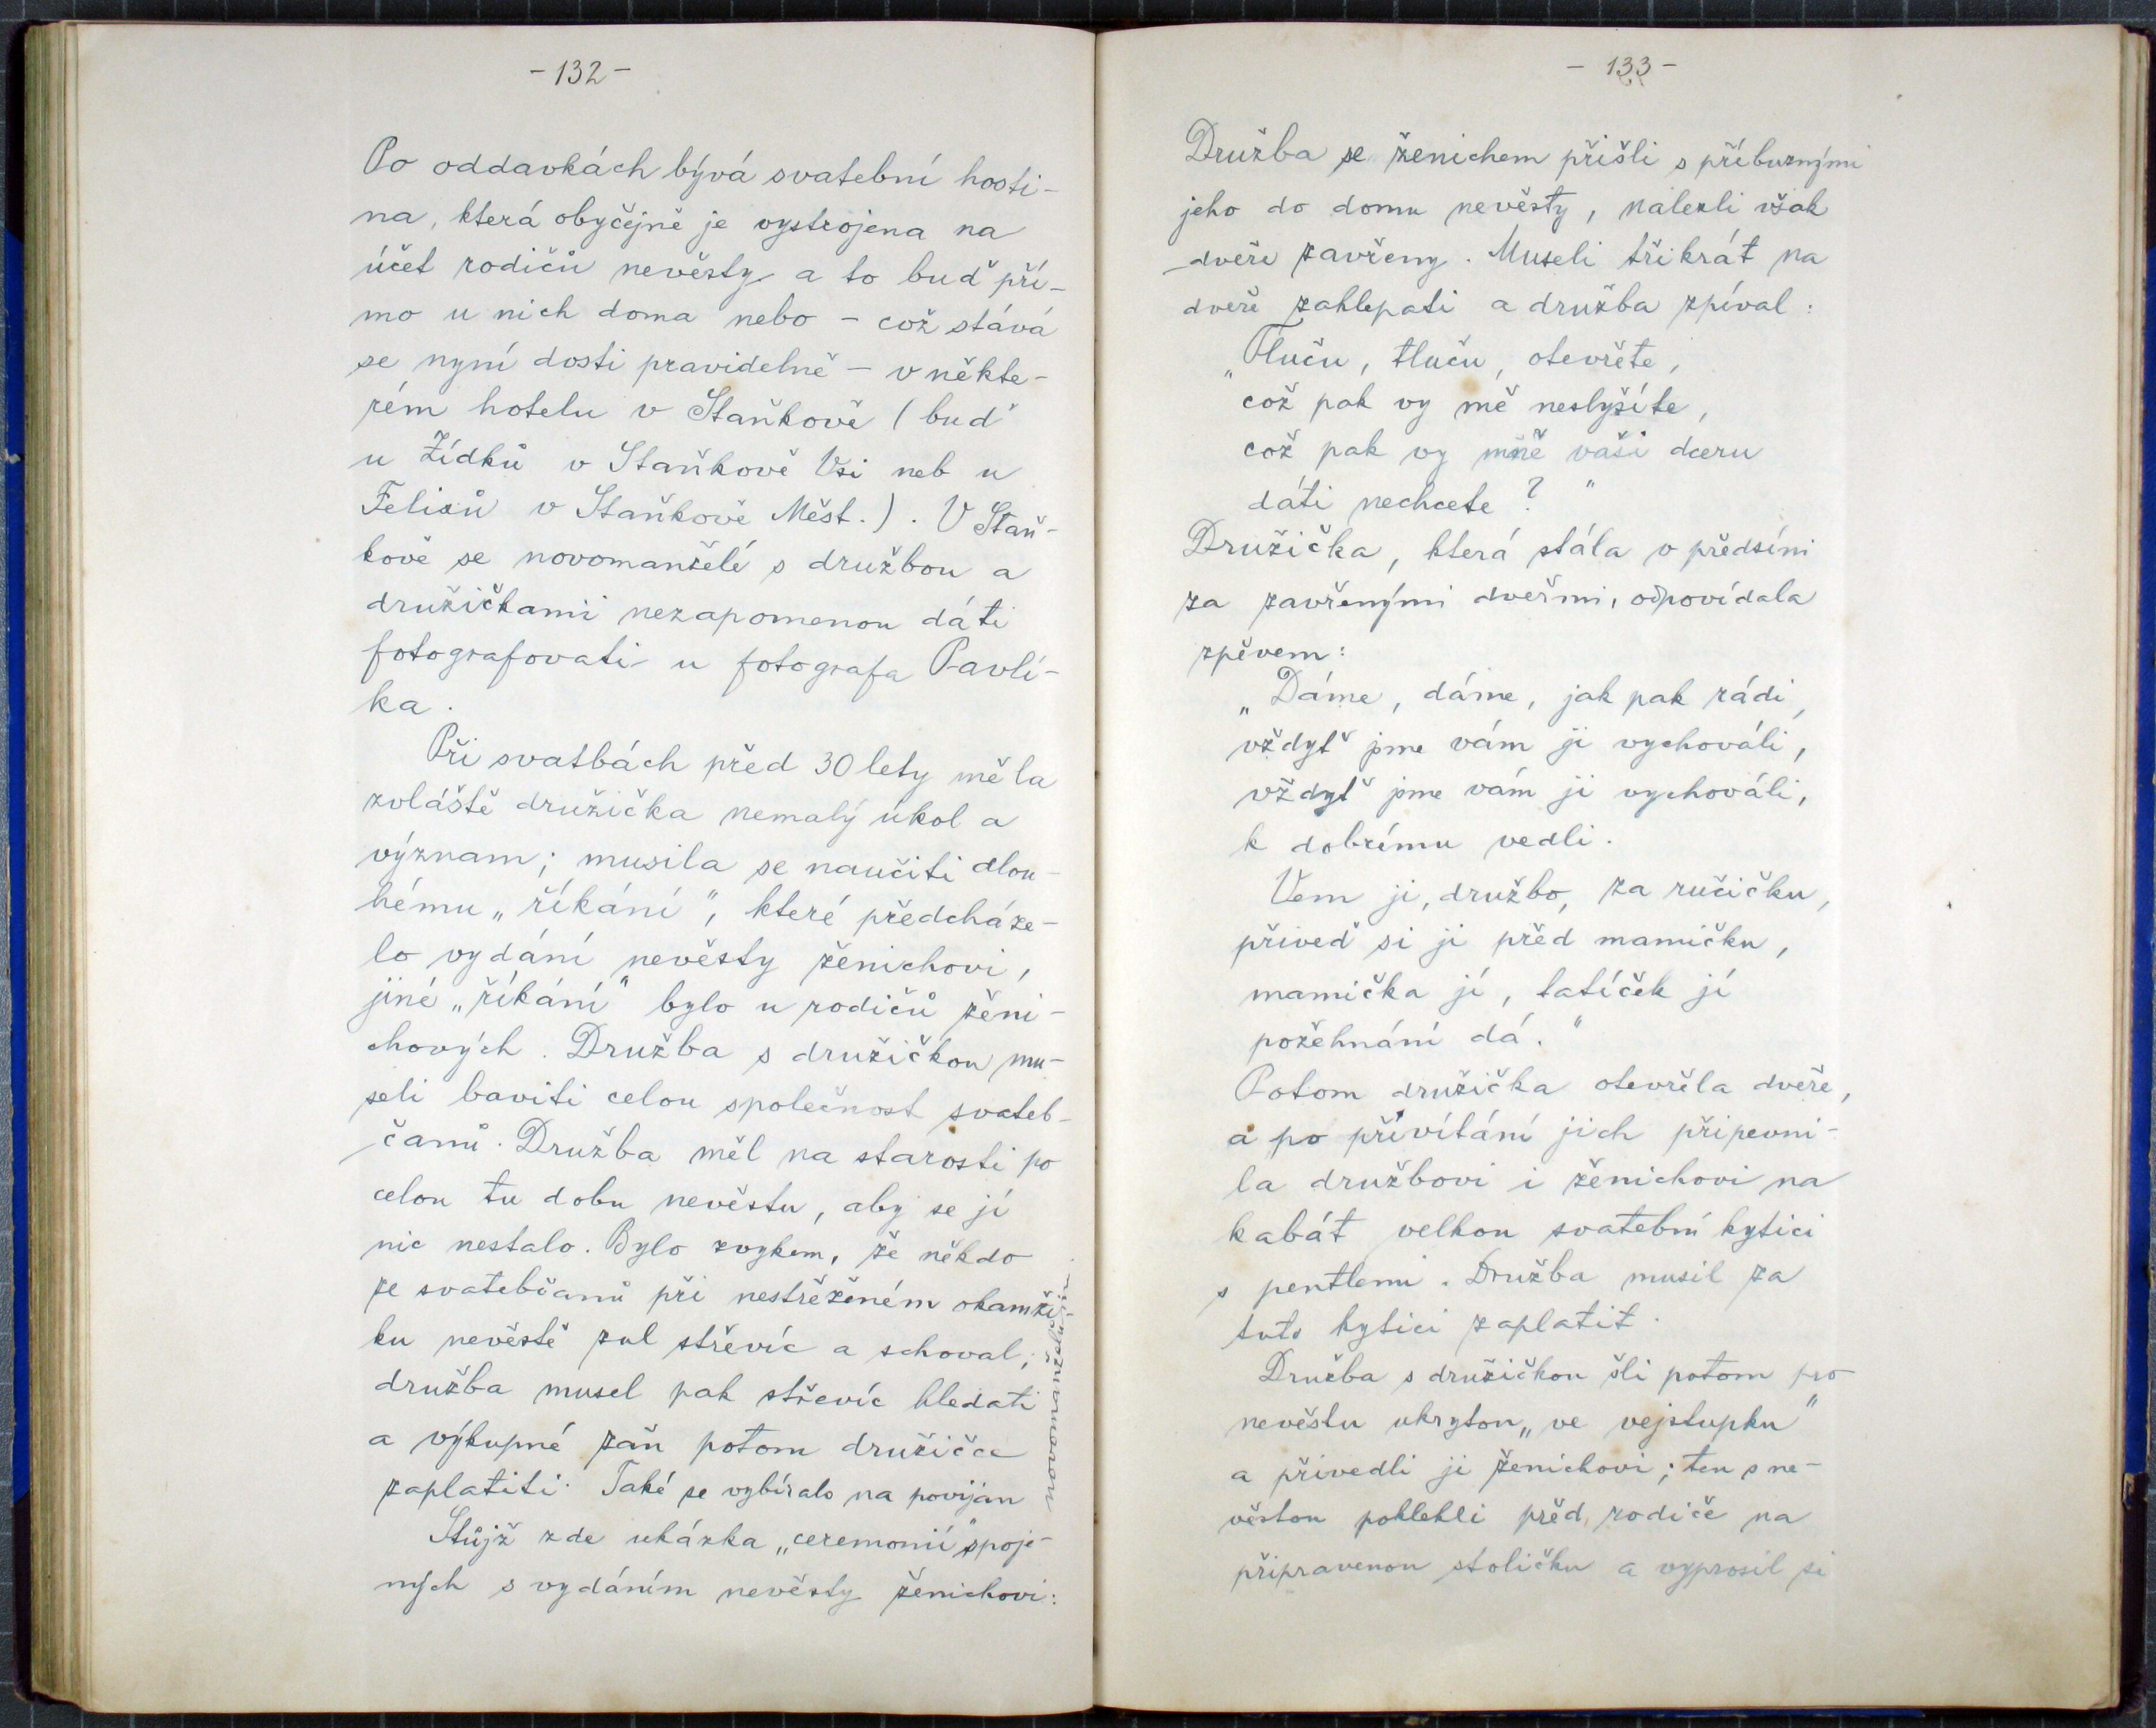 - 132 -
Po oddavkách bývá svatební hosti-
na, která obyčejně je vystrojena na
účet rodičů nevěsty a to buď pří-
mo u nich doma nebo - což stává
se nyní dosti pravidelně - v někte-
rém hotelu v Staňkově (buď
u Žídků v Staňkově Vsi neb u
Felixů v Staňkově Měst.). V Staň-
kově se novomanželé s družbou a
družičkami nezapomenou dáti
fotografovati u fotografa Pavlí-
ka.
Při svatbách před 30 lety měla
zvláště družička nemalý úkol a
význam; musila se naučiti dlou-
hému „říkání", které předcháze-
lo vydání nevěsty ženichovi,
jiné „říkání" bylo u rodičů ženi-
chových. Družba s družičkou mu-
seli baviti celou společnost svateb-
čanů. Družba měl na starosti po
celou tu dobu nevěstu, aby se jí
nic nestalo. Bylo zvykem, že někdo
ze svatebčanů při nestřeženém okamži-
ku nevěstě zul střevíc a schoval;
družba musel pak střevíc hledati
a výkupné zaň potom družičce
zaplatiti. Také se vybíralo na povijan
novomanželům.
Stůjž zde ukázka „ceremonií" spoje-
ných s vydáním nevěsty ženichovi:
- 133 -
Družba se ženichem přišli s příbuznými
jeho do domu nevěsty, nalezli však
dveře zavřeny. Museli třikrát na
dveře zaklepati a družba zpíval:
„Tluču, tluču, otevřete,
což pak vy mě neslyšíte,
což pak vy mně vaši dceru
dáti nechcete?"
Družička, která stála v předsíni
za zavřenými dveřmi, odpovídala
zpěvem:
„Dáme, dáme, jak pak rádi,
vždyť jsme vám ji vychováli,
vždyť jsme vám ji vychováli,
k dobrému vedli.
Vem ji, družbo, za ručičku,
přiveď si ji před mamičku,
mamička jí, tatíček jí
požehnání dá."
Potom družička otevřela dveře,
a po přivítání jich připevni-
la družbovi i ženichovi na
kabát velkou svatební kytici
s pentlemi. Družba musil za
tuto kytici zaplatit.
Družba s družičkou šli potom pro
nevěstu ukrytou „ve vejstupku"
a přivedli ji ženichovi; ten s ne-
věstou poklekli před rodiče na
připravenou stoličku a vyprosil si